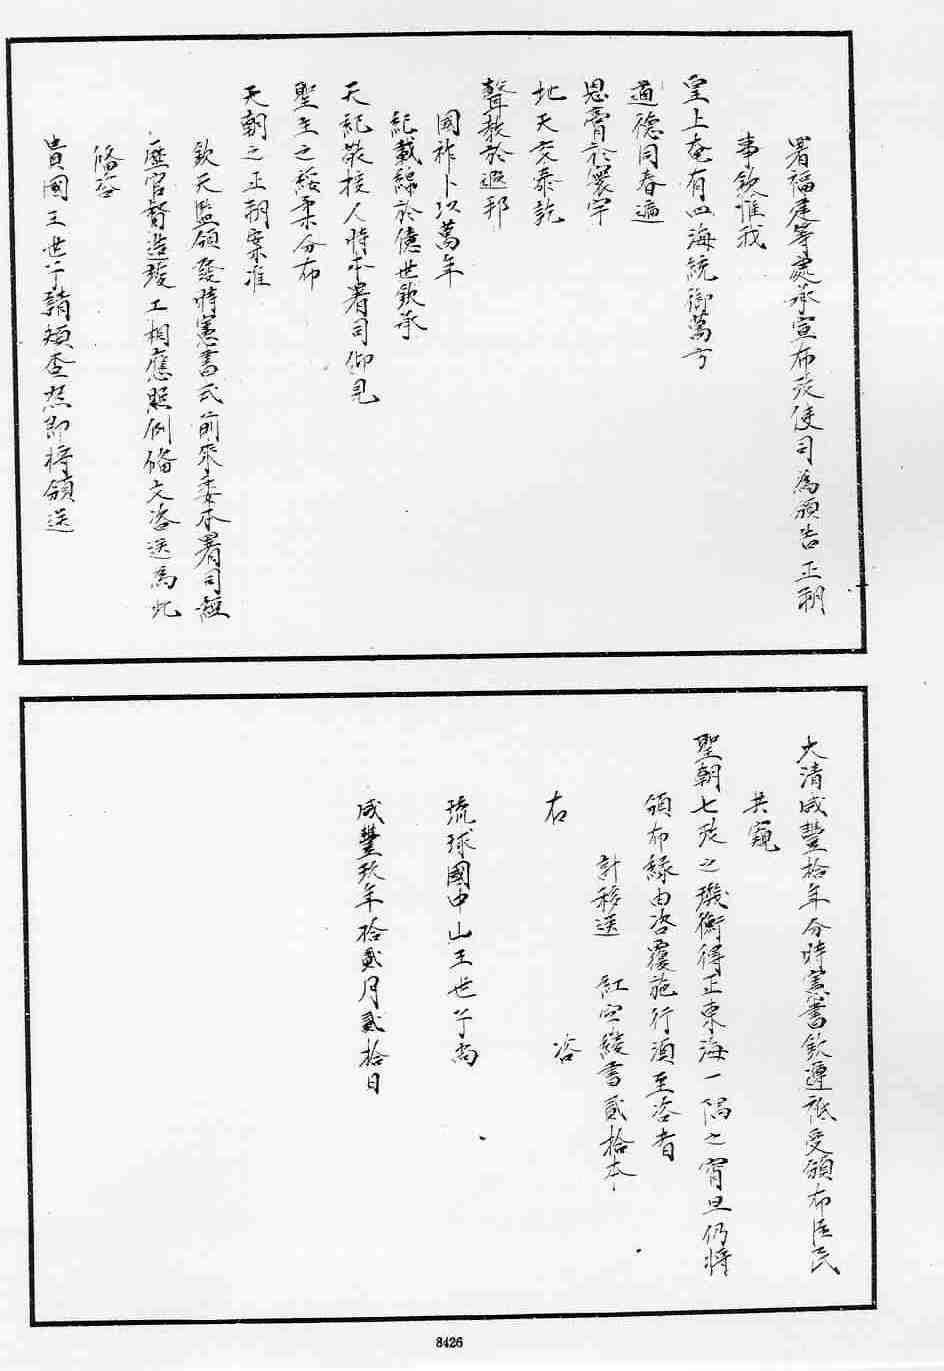 署福建等處承宣布政使司為頒告正朔
事欽惟我
皇上奄有四海統御萬方
道德同春遍
恩膏於寰宇
地天交泰訖
聲教於遐邦
國祚卜以萬年
紀載綿於億世欽承
天紀蔡授人時本署司仰見
聖主之綏柔分布
天朝之正朔案准
欽天監頒發時憲書式前來委本署司經
歷官督造竣工相應照例備文咨送為此
備咨
貴國王世子請煩查照即將頒送
大清咸豐拾年分時憲書欽遵祗受頒布臣民
共窺
聖朝七政之璣衡得正東海一隅之宵旦仍將
頒布緣由咨覆施行須至咨者
計移送 紅面綾書貳拾本
右 咨
琉球國中山王世子尚
咸豐玖年拾貳月貳拾日
8426